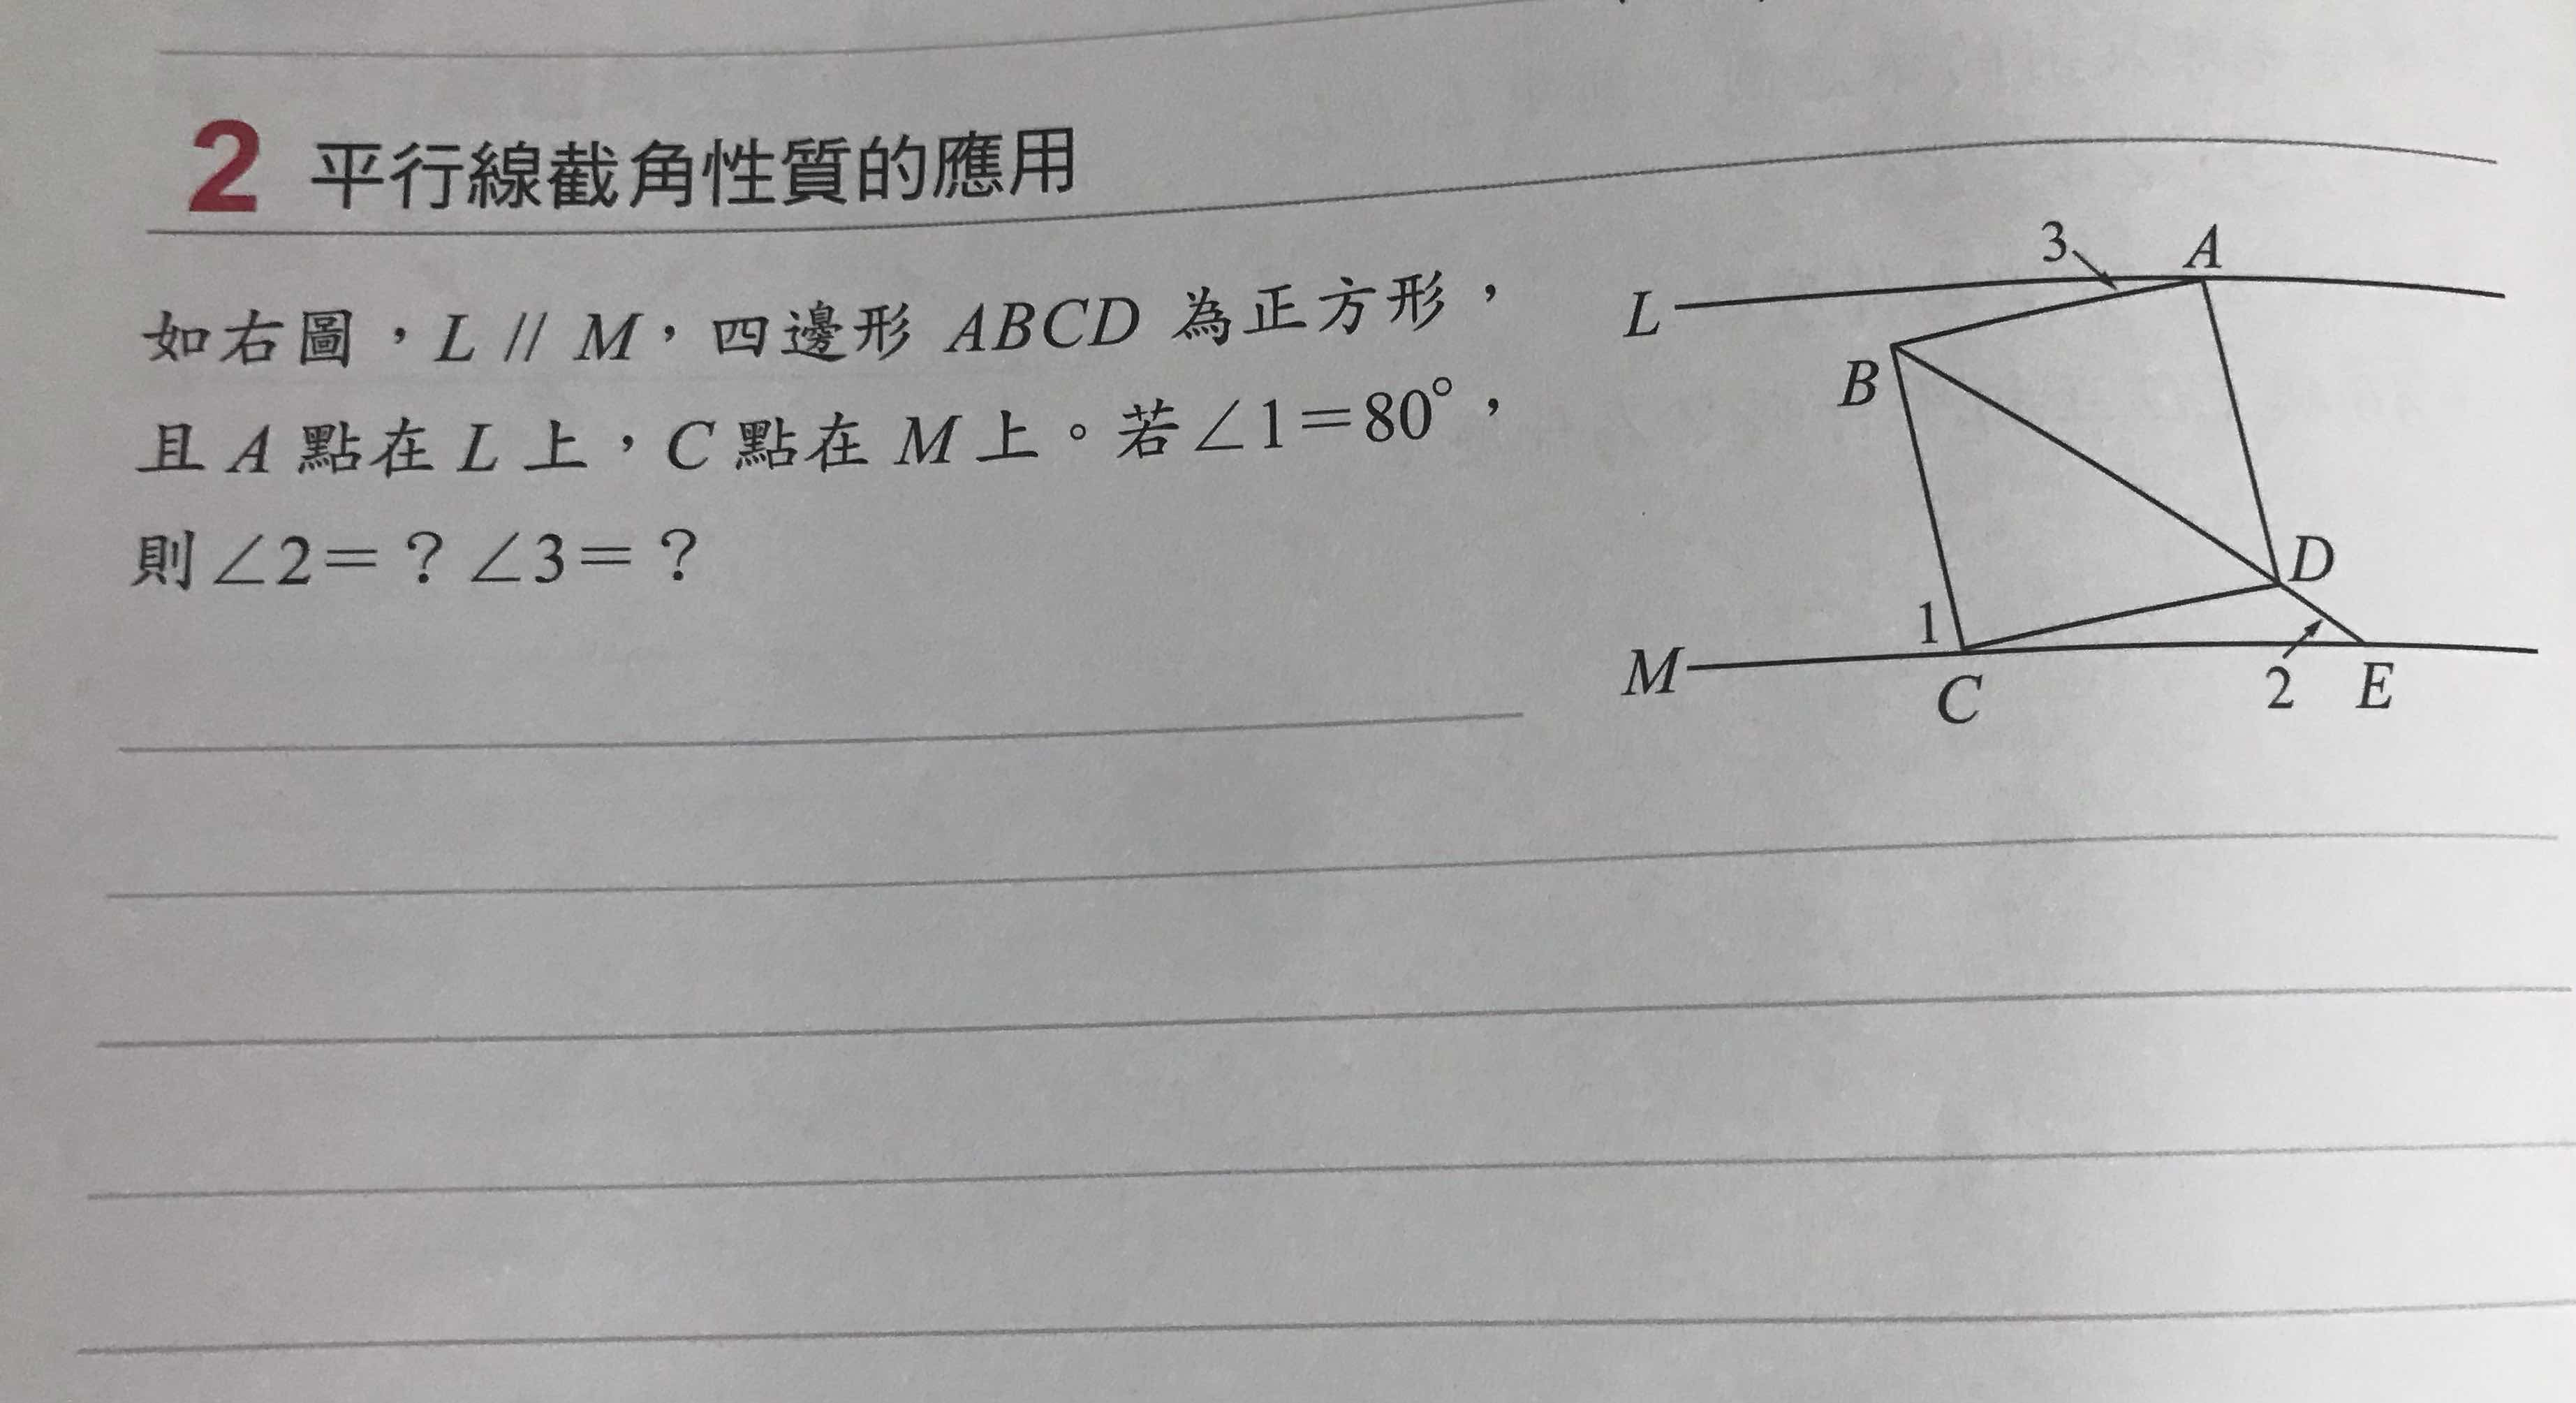 2 平行線截角性質的應用
如右圖，L // M，四邊形 ABCD 為正方形，
且 A 點在 L 上，C 點在 M 上。若∠1＝80°，
則∠2＝？∠3＝？
3
A
L
B
D
1
M
C
2
E